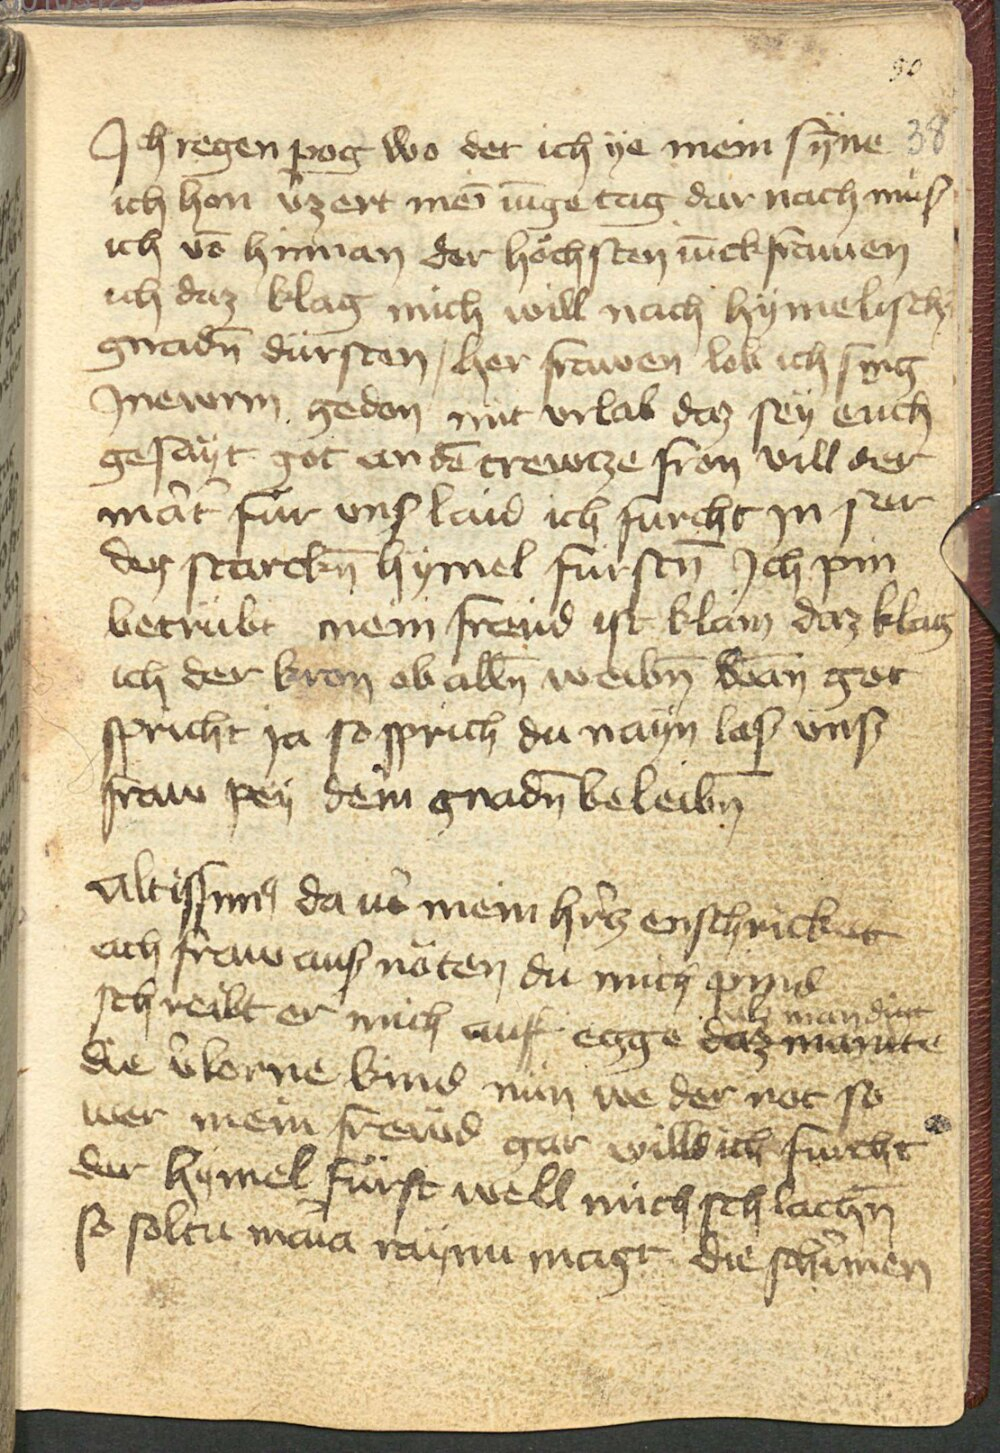 90
38
Ich regen pog wo der ich ye mein syne
ich hon v̉zert mei᷃ iu᷃ge tag dar nach müs
ich vo᷃ hinnan der höchsten iu᷃ckfrawen
ich daz klag mich will nach hymelisch᷃
gnadn᷃ dürsten / her frawen lob ich sing
In ewrm gedon mit vrlab daz seÿ euch
gesaÿt got an de᷃ crewtze fron vill der
mart̉ für vns laid ich furcht jn ser
den starckn᷃ hymel fürstn᷃ Ich pin
betrübt mein freüd ist klain daz klag
ich der kron ob alln᷃ weibn᷃ wan got
spricht ja so sprich du nayn las vns
fraw peÿ dein gnadn᷃ beleibn᷃
Altissimꝰ da vo᷃ mein hertz erschricket
ach fraw aus nöten du mich pind
schreibt er mich auff egge daz mainte
als man diut
die v̉lorne kind nün we der not so
wer mein frewd gar willd ich furcht
der hymel fürst well mich schlachn᷃
so soltu maria raynu magt die schirmen